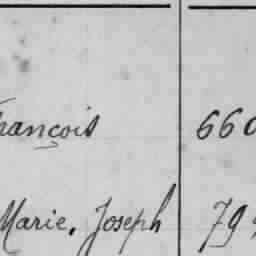 François 660
Marie, Joseph 79